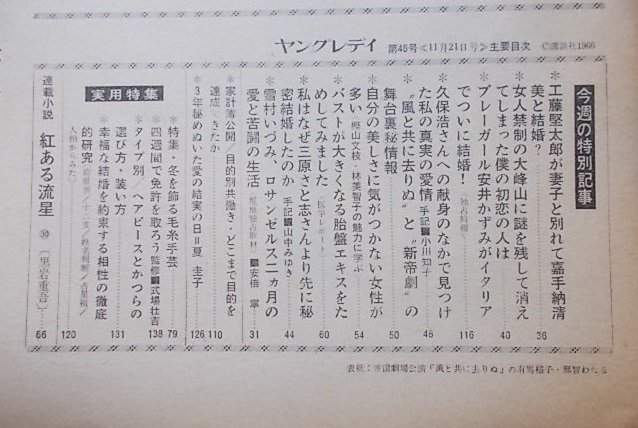 ヤングレデイ 第46号≪11月21日号≫主要目次 ©講談社1966
今週の特別記事
*工藤堅太郎が妻子と別れて嘉手納清
美と結婚? 36
*女人禁制の大峰山に謎を残して消え
てしまった僕の初恋の人は 40
*プレーガール安井かずみがイタリア
でついに結婚! 116
*久保浩さんへの献身のなかで見つけ
た私の真実の愛情 手記■小川知子 46
*“風と共に去りぬ”と“新帝劇”の
舞台裏秘情報 50
*自分の美しさに気がつかない女性が
多い 樫山文枝・林美智子の魅力に学ぶ 54
*バストが大きくなる胎盤エキスをた
めしてみました 60
*私はなぜ三原さんと志さんより先に秘
密結婚したのか 手記■山中みゆき 44
*雪村いづみ、ロサンゼルス二ヵ月の
愛と苦闘の生活 ■安倍寧 31
*家計簿公開 目的別共働き・どこまで目的を
達成できたか 110
*3年秘めぬいた愛の結実の日=夏圭子 126
実用特集
*特集・冬を飾る毛糸手芸 79
*四週間で免許を取ろう 監修■式場壮吉 138
*タイプ別/ヘアピースとかつらの
選び方・装い方 131
*幸福な結婚を約束する相性の徹底
的研究 120
連載小説 紅ある流星 ⑩ [黒岩重吾] 66
表紙:帝国劇場公演「風と共に去りぬ」の有馬稲子・那智わたる